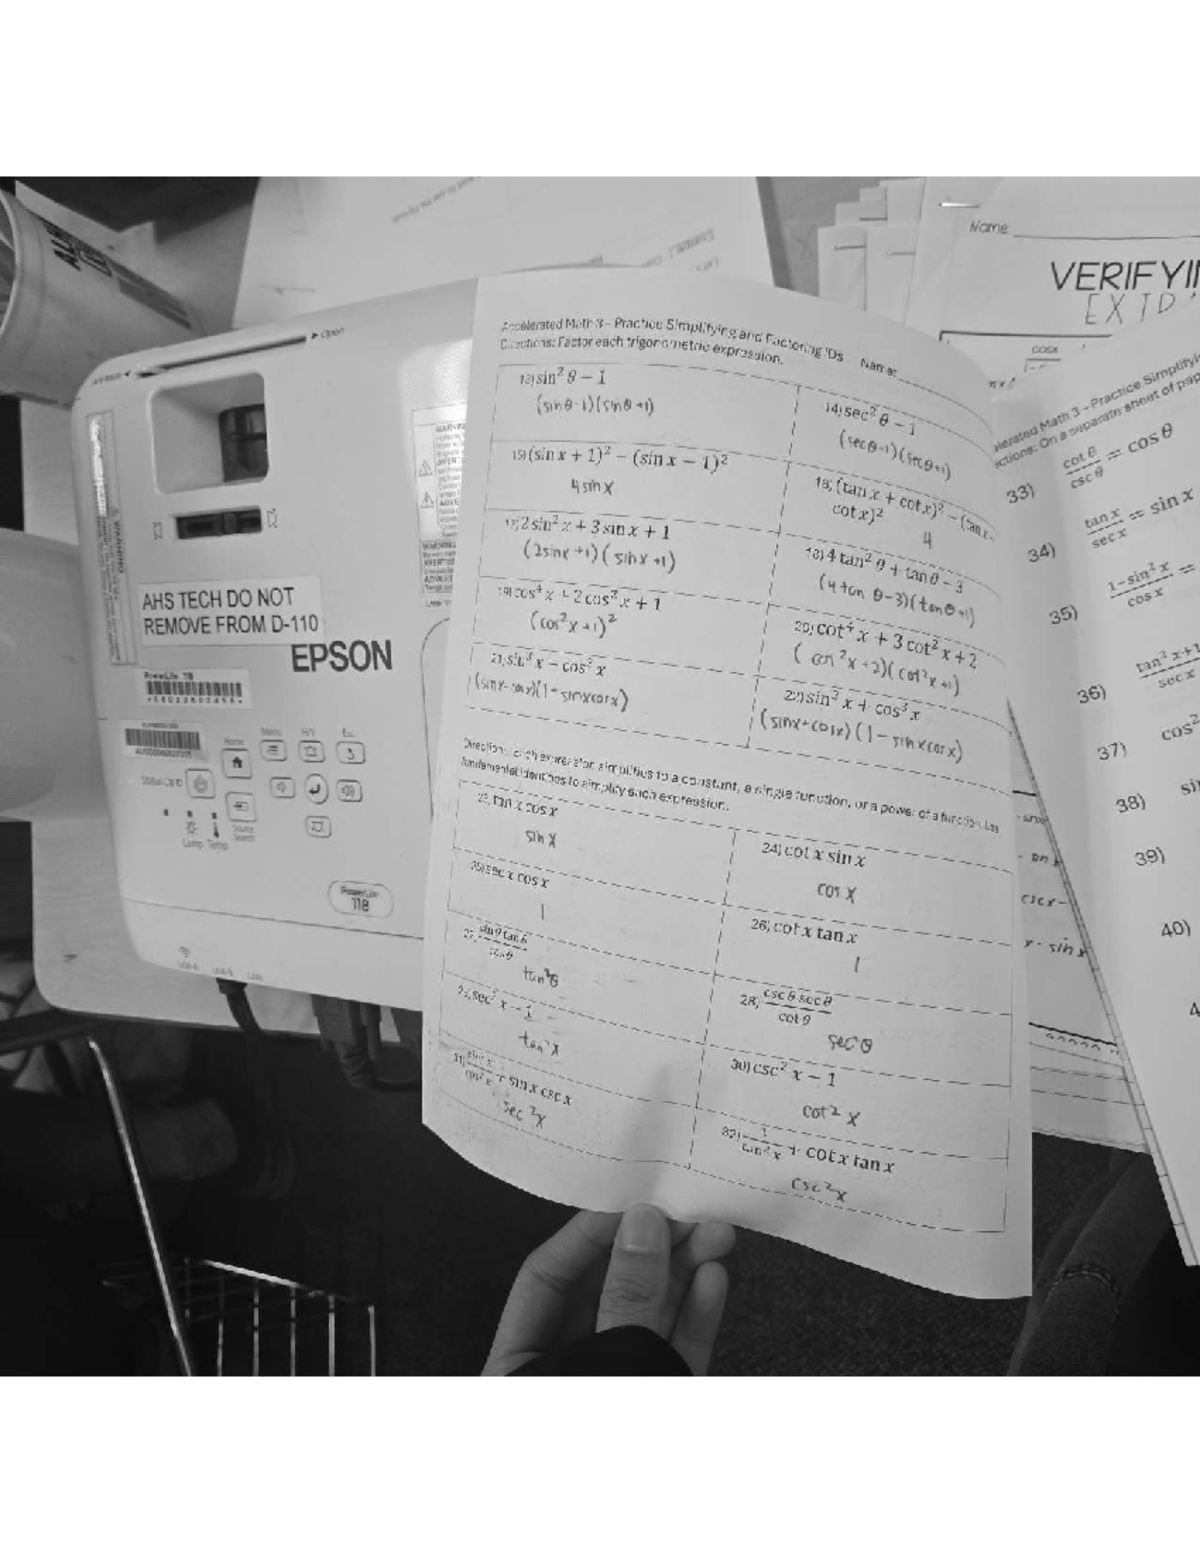 ► Open
AHS TECH DO NOT
REMOVE FROM D-110
EPSON
PowerLite 118
Home
Menu
Esc
Lamp Temp
Source
Search
PowerLite
118
USB-A USB-B LAN
Accelerated Math 3 – Practice Simplifying and Factoring IDs Name:
Directions: Factor each trigonometric expression.
13) sin² θ − 1
(sinθ-1)(sinθ+1)
14) sec² θ − 1
(secθ-1)(secθ+1)
15) (sin x + 1)² − (sin x − 1)²
4 sin x
16) (tan x + cot x)² − (tan x −
cot x)²
4
17) 2 sin² x + 3 sin x + 1
(2sinx+1)(sinx+1)
18) 4 tan² θ + tan θ − 3
(4tan θ-3)(tanθ+1)
19) cos⁴ x + 2 cos² x + 1
(cos²x+1)²
20) cot⁴ x + 3 cot² x + 2
(cot²x+2)(cot²x+1)
21) sin³ x − cos³ x
(sinx-cosx)(1+sinxcosx)
22) sin³ x + cos³ x
(sinx+cosx)(1-sinxcosx)
Directions: Each expression simplifies to a constant, a single function, or a power of a function. Use
fundamental identities to simplify each expression.
23) tan x cos x
sin x
24) cot x sin x
cos x
25) sec x cos x
1
26) cot x tan x
1
27) sin θ tan θ / cos θ
tan²θ
28) csc θ sec θ / cot θ
sec²θ
29) sec² x − 1
tan²x
30) csc² x − 1
cot² x
31) sin² x / cos² x + sin x csc x
sec²x
32) 1 / tan² x + cot x tan x
csc²x
Name:
VERIFYI
cosx
33) cot θ / csc θ = cos θ
34) tan x / sec x = sin x
35) 1−sin² x / cos x =
36) tan² x+1 / sec x
37) cos²
38) si
39)
40)
cscx-
x - sinx